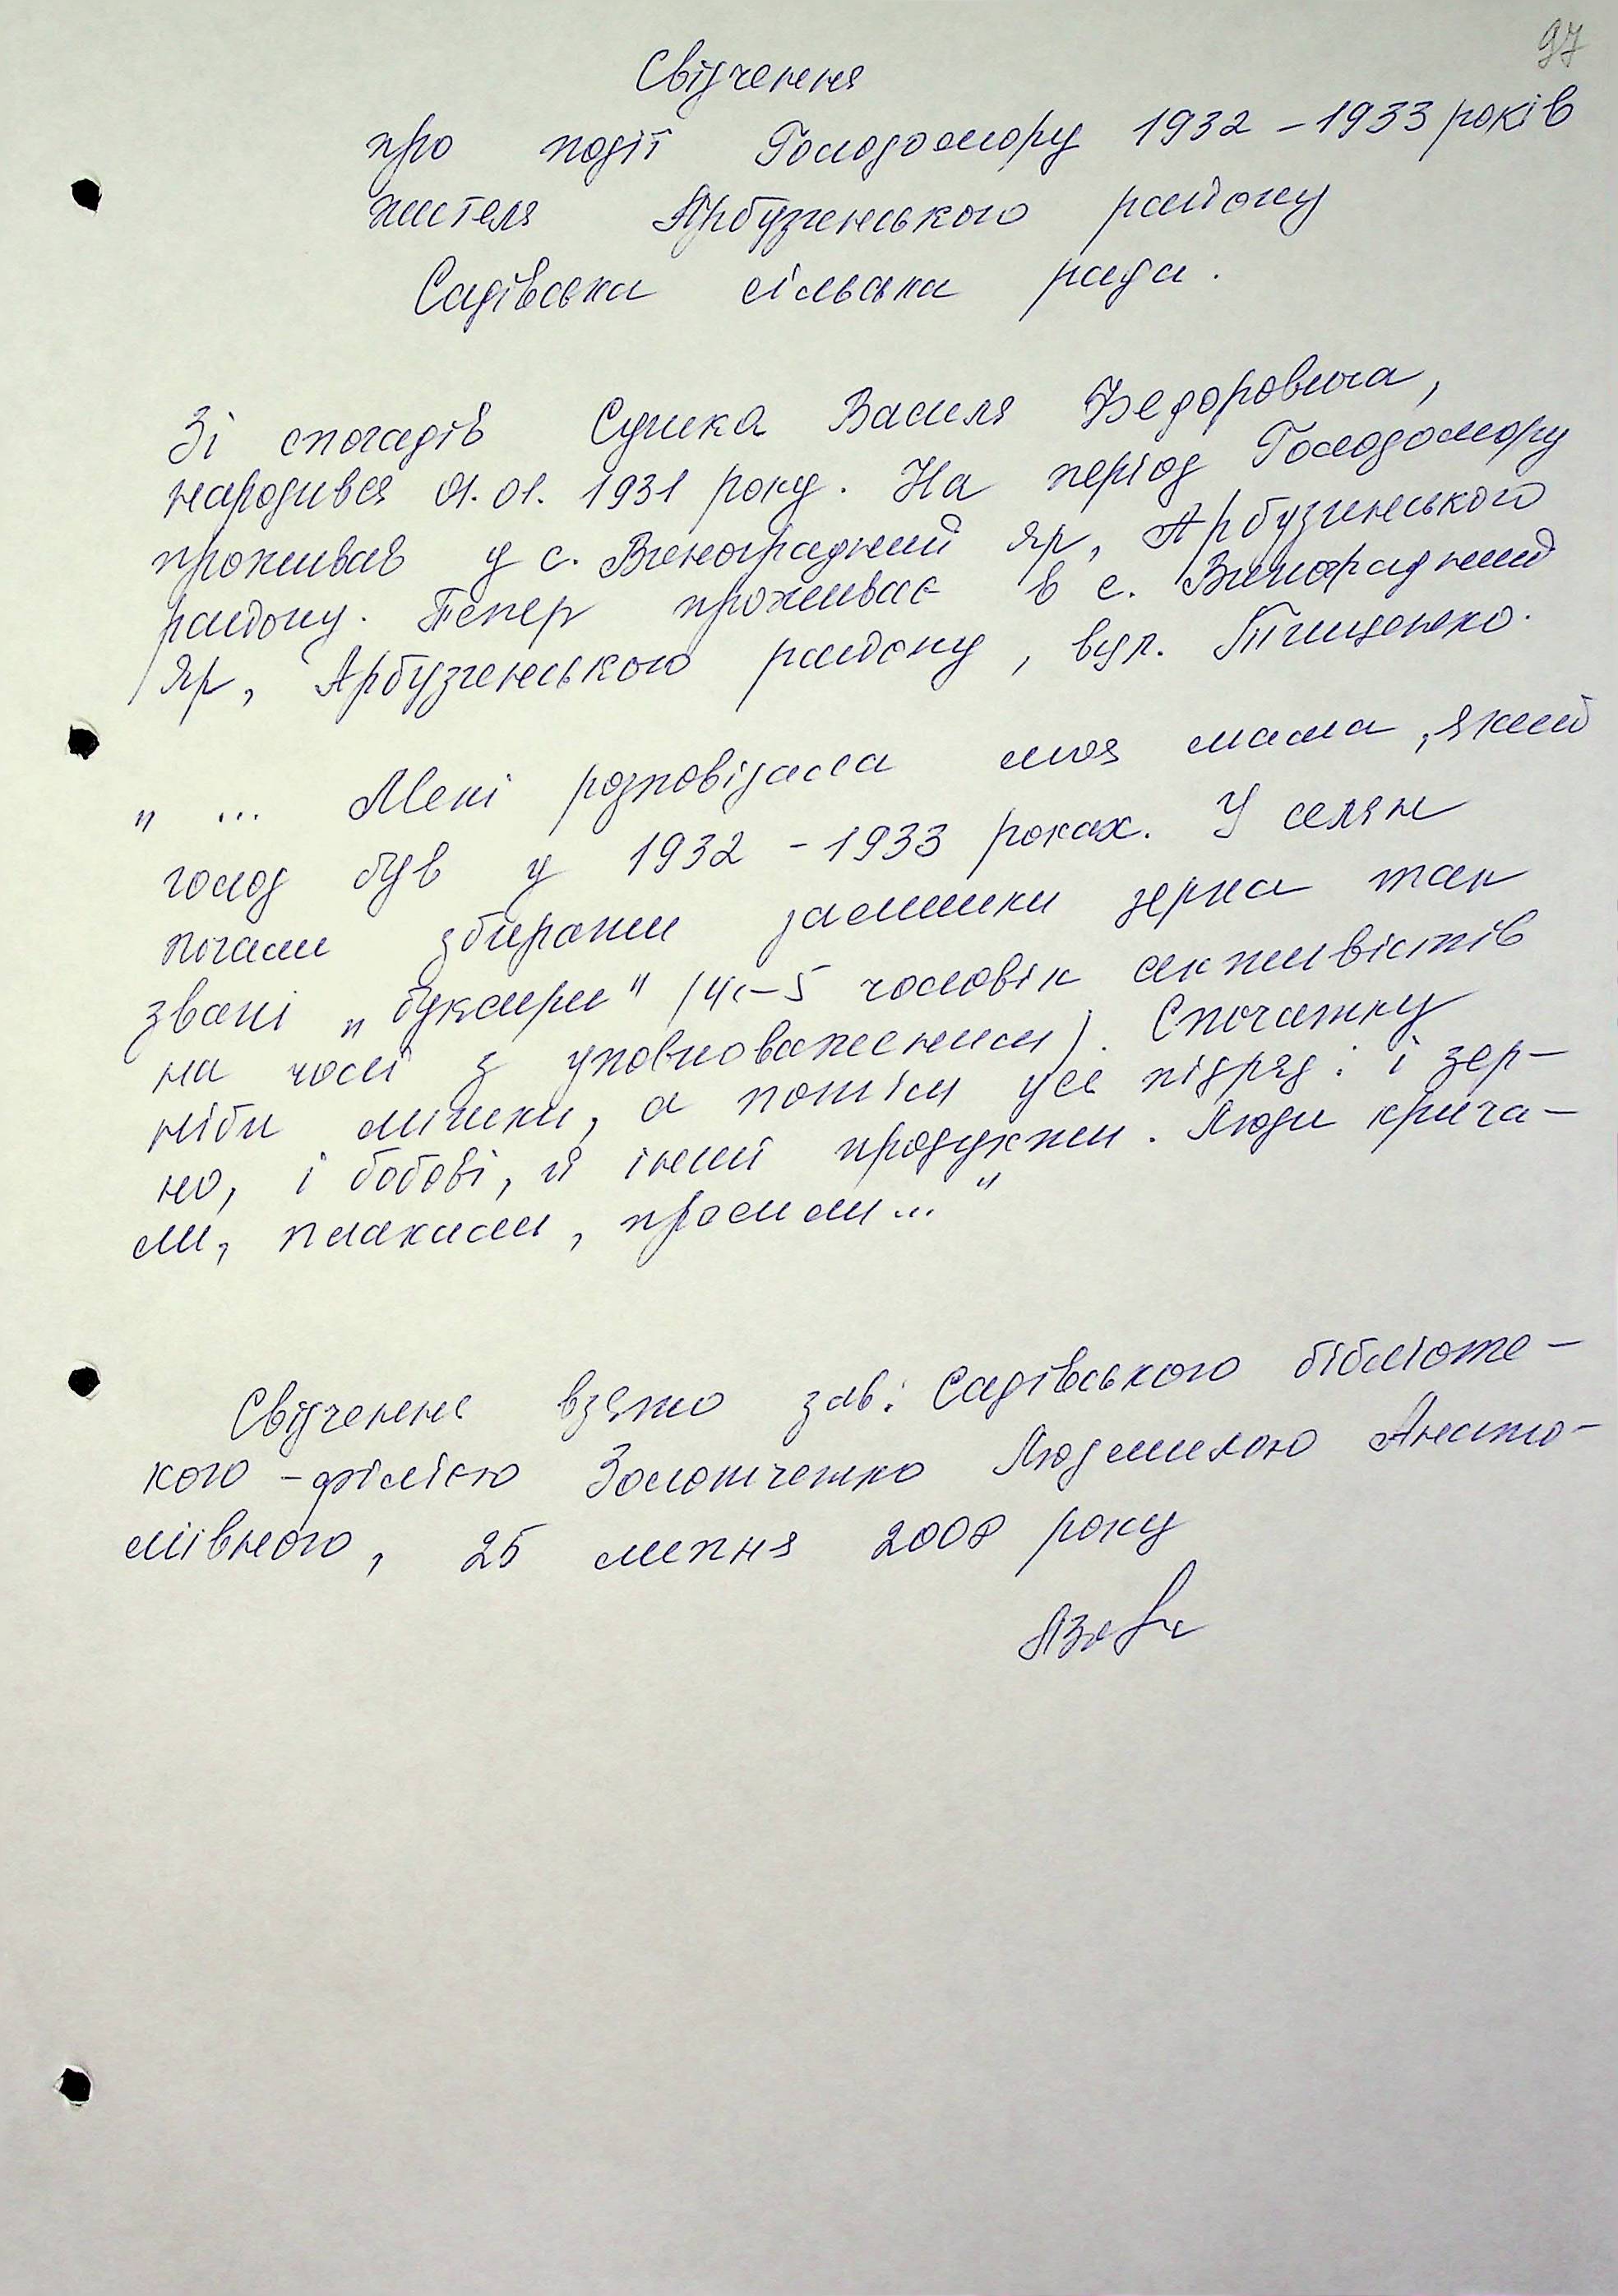 97
Свідчення
про події Голодомору 1932 - 1933 років
жителя Арбузинського району
Садівська сільська рада.
Зі спогадів Сушка Василя Федоровича,
народився 01.01. 1931 року. На період Голодомору
проживав у с. Виноградний Яр, Арбузинського
району. Тепер проживає в с. Виноградний
Яр, Арбузинського району, вул. Тищенко.
„ ... Мені розповідала моя мама, який
голод був у 1932 - 1933 роках. У селян
почали збирати залишки зерна так
звані „буксири" (4-5 чоловік активістів
на чолі з уповноваженим). Спочатку
ніби лишки, а потім усе підряд: і зер-
но, і бобові, й інші продукти. Люди крича-
ли, плакали, просили..."
Свідчення взято зав. Садівського бібліоте-
кою - філією Золотченко Людмилою Анато-
ліївною, 25 липня 2008 року